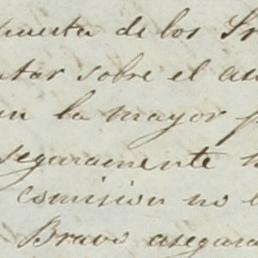 puesta de los Sr
tar sobre el as
en la mayor p
seguramente h
comision no l
Bravo asegura